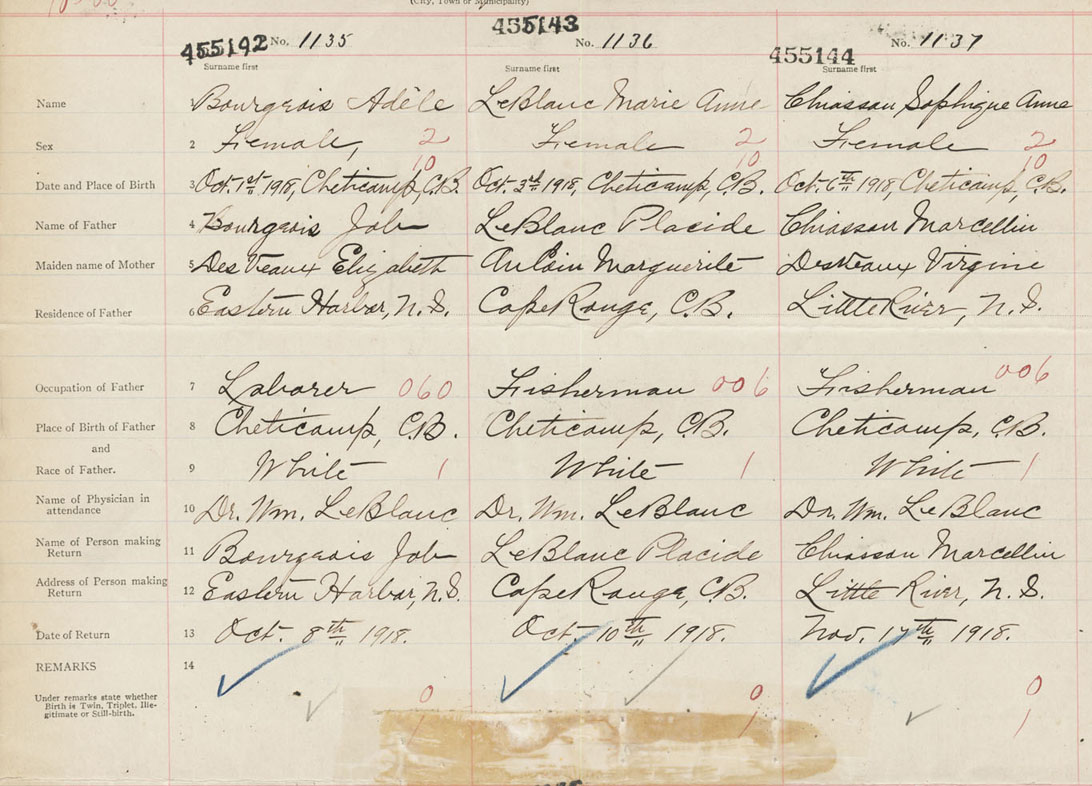 (City, Town or Municipality)
455142 No. 1135 455143 No. 1136 455144 No. 1137
Surname first Surname first Surname first
Name 1 Bourgeois Adèle LeBlanc Marie Anne Chiasson Sophique Anne
Sex 2 Female, 2 Female 2 Female 2
10 10 10
Date and Place of Birth 3 Oct. 1st 1918, Cheticamp, C.B. Oct. 3rd 1918, Cheticamp, C.B. Oct. 6th 1918, Cheticamp, C.B.
Name of Father 4 Bourgeois Job LeBlanc Placide Chiasson Marcellin
Maiden name of Mother 5 DesVeaux Elizabeth AuCoin Marguerite Desveaux Virgine
Residence of Father 6 Eastern Harbor, N.S. Cape Rouge, C.B. Little River, N.S.
Occupation of Father 7 Laborer 060 Fisherman 006 Fisherman 006
Place of Birth of Father 8 Cheticamp, C.B. Cheticamp, C.B. Cheticamp, C.B.
and
Race of Father. 9 White 1 White 1 White 1
Name of Physician in attendance 10 Dr. Wm. LeBlanc Dr. Wm. LeBlanc Dr. Wm. LeBlanc
Name of Person making Return 11 Bourgeois Job LeBlanc Placide Chiasson Marcellin
Address of Person making Return 12 Eastern Harbor, N.S. Cape Rouge, C.B. Little River, N.S.
Date of Return 13 Oct. 8th 1918. Oct. 10th 1918. Nov. 17th 1918.
REMARKS 14
Under remarks state whether
Birth is Twin, Triplet, Ille-
gitimate or Still-birth.
0 0 0
1 1 1